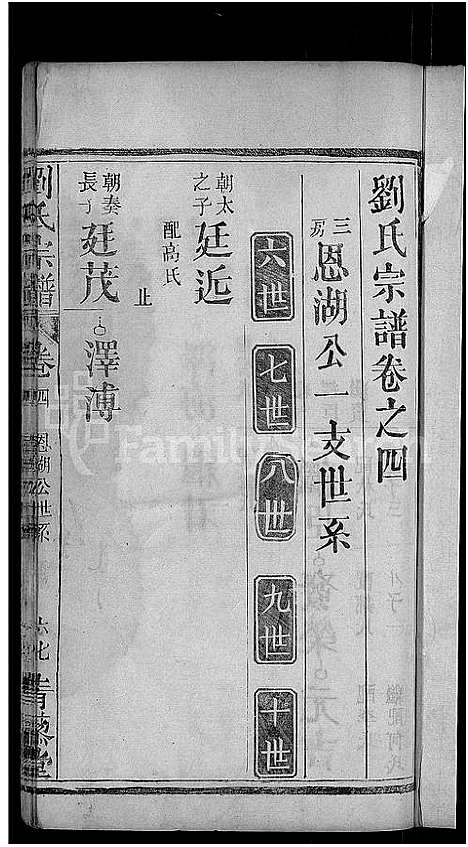 劉氏宗譜卷之四
三房恩湖公一支世系
六世 七世 八世 九世 十世
朝太之子廷近
配高氏
止
朝奏長子廷茂 澤溥
劉氏宗譜 卷四 恩湖公世系 六七 青藜堂